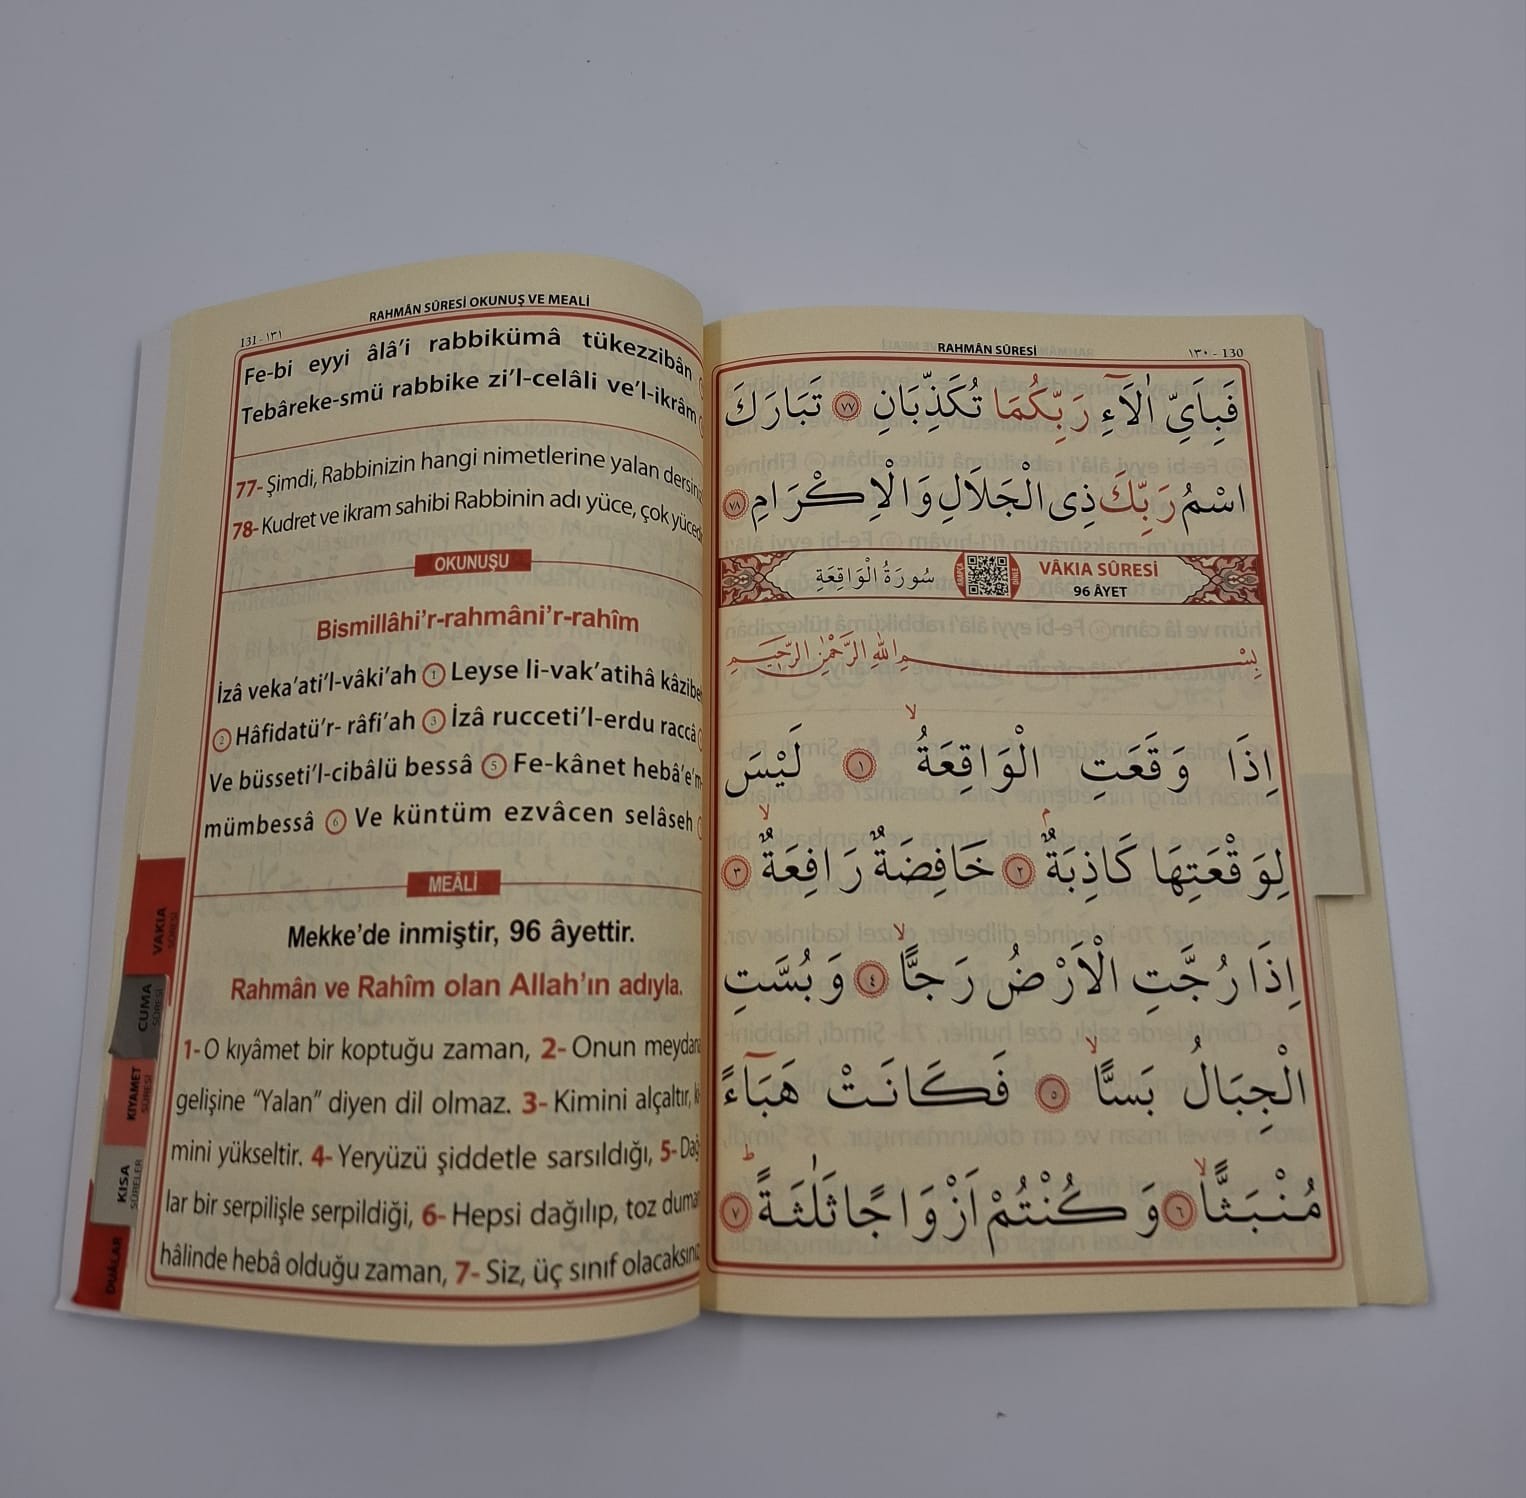 RAHMÂN SÛRESİ
١٣٠ - 130
فَبِاَيِّ اٰلَٓاءِ رَبِّكُمَا تُكَذِّبَانِ ٧٧ تَبَارَكَ
اسْمُ رَبِّكَ ذِي الْجَلَالِ وَالْاِكْرَامِ ٧٨
سُورَةُ الْوَاقِعَةِ
ARAPÇA
DİNLE
VÂKIA SÛRESİ
96 ÂYET
بِسْمِ اللّٰهِ الرَّحْمٰنِ الرَّحِيمِ
اِذَا وَقَعَتِ الْوَاقِعَةُۙ ١ لَيْسَ
لِوَقْعَتِهَا كَاذِبَةٌۢ ٢ خَافِضَةٌ رَافِعَةٌۙ ٣
اِذَا رُجَّتِ الْاَرْضُ رَجًّاۙ ٤ وَبُسَّتِ
الْجِبَالُ بَسًّاۙ ٥ فَكَانَتْ هَبَٓاءً
مُنْبَثًّاۙ ٦ وَكُنْتُمْ اَزْوَاجًا ثَلٰثَةًؕ ٧
131 - ١٣١
RAHMÂN SÛRESİ OKUNUŞ VE MEALİ
Fe-bi eyyi âlâ’i rabbikümâ tükezzibân
Tebâreke-smü rabbike zi’l-celâli ve’l-ikrâm
77- Şimdi, Rabbinizin hangi nimetlerine yalan
78- Kudret ve ikram sahibi Rabbinin adı yüce, çok
OKUNUŞU
Bismillâhi’r-rahmâni’r-rahîm
İzâ veka’ati’l-vâki’ah 1 Leyse li-vak’atihâ
2 Hâfidatü’r- râfi’ah 3 İzâ rucceti’l-erdu raccâ
Ve büsseti’l-cibâlü bessâ 5 Fe-kânet
mümbessâ 6 Ve küntüm ezvâcen selâseh
MEÂLİ
Mekke’de inmiştir, 96 âyettir.
Rahmân ve Rahîm olan Allah’ın adıyla.
1- O kıyâmet bir koptuğu zaman, 2- Onun
gelişine “Yalan” diyen dil olmaz. 3- Kimini alçaltır,
mini yükseltir. 4- Yeryüzü şiddetle sarsıldığı, 5- Dağ
lar bir serpilişle serpildiği, 6- Hepsi dağılıp, toz
hâlinde hebâ olduğu zaman, 7- Siz, üç sınıf
VAKIA
SÛRESİ
CUMA
SÛRESİ
KIYAMET
SÛRESİ
KISA
SÛRELER
DUÂLAR